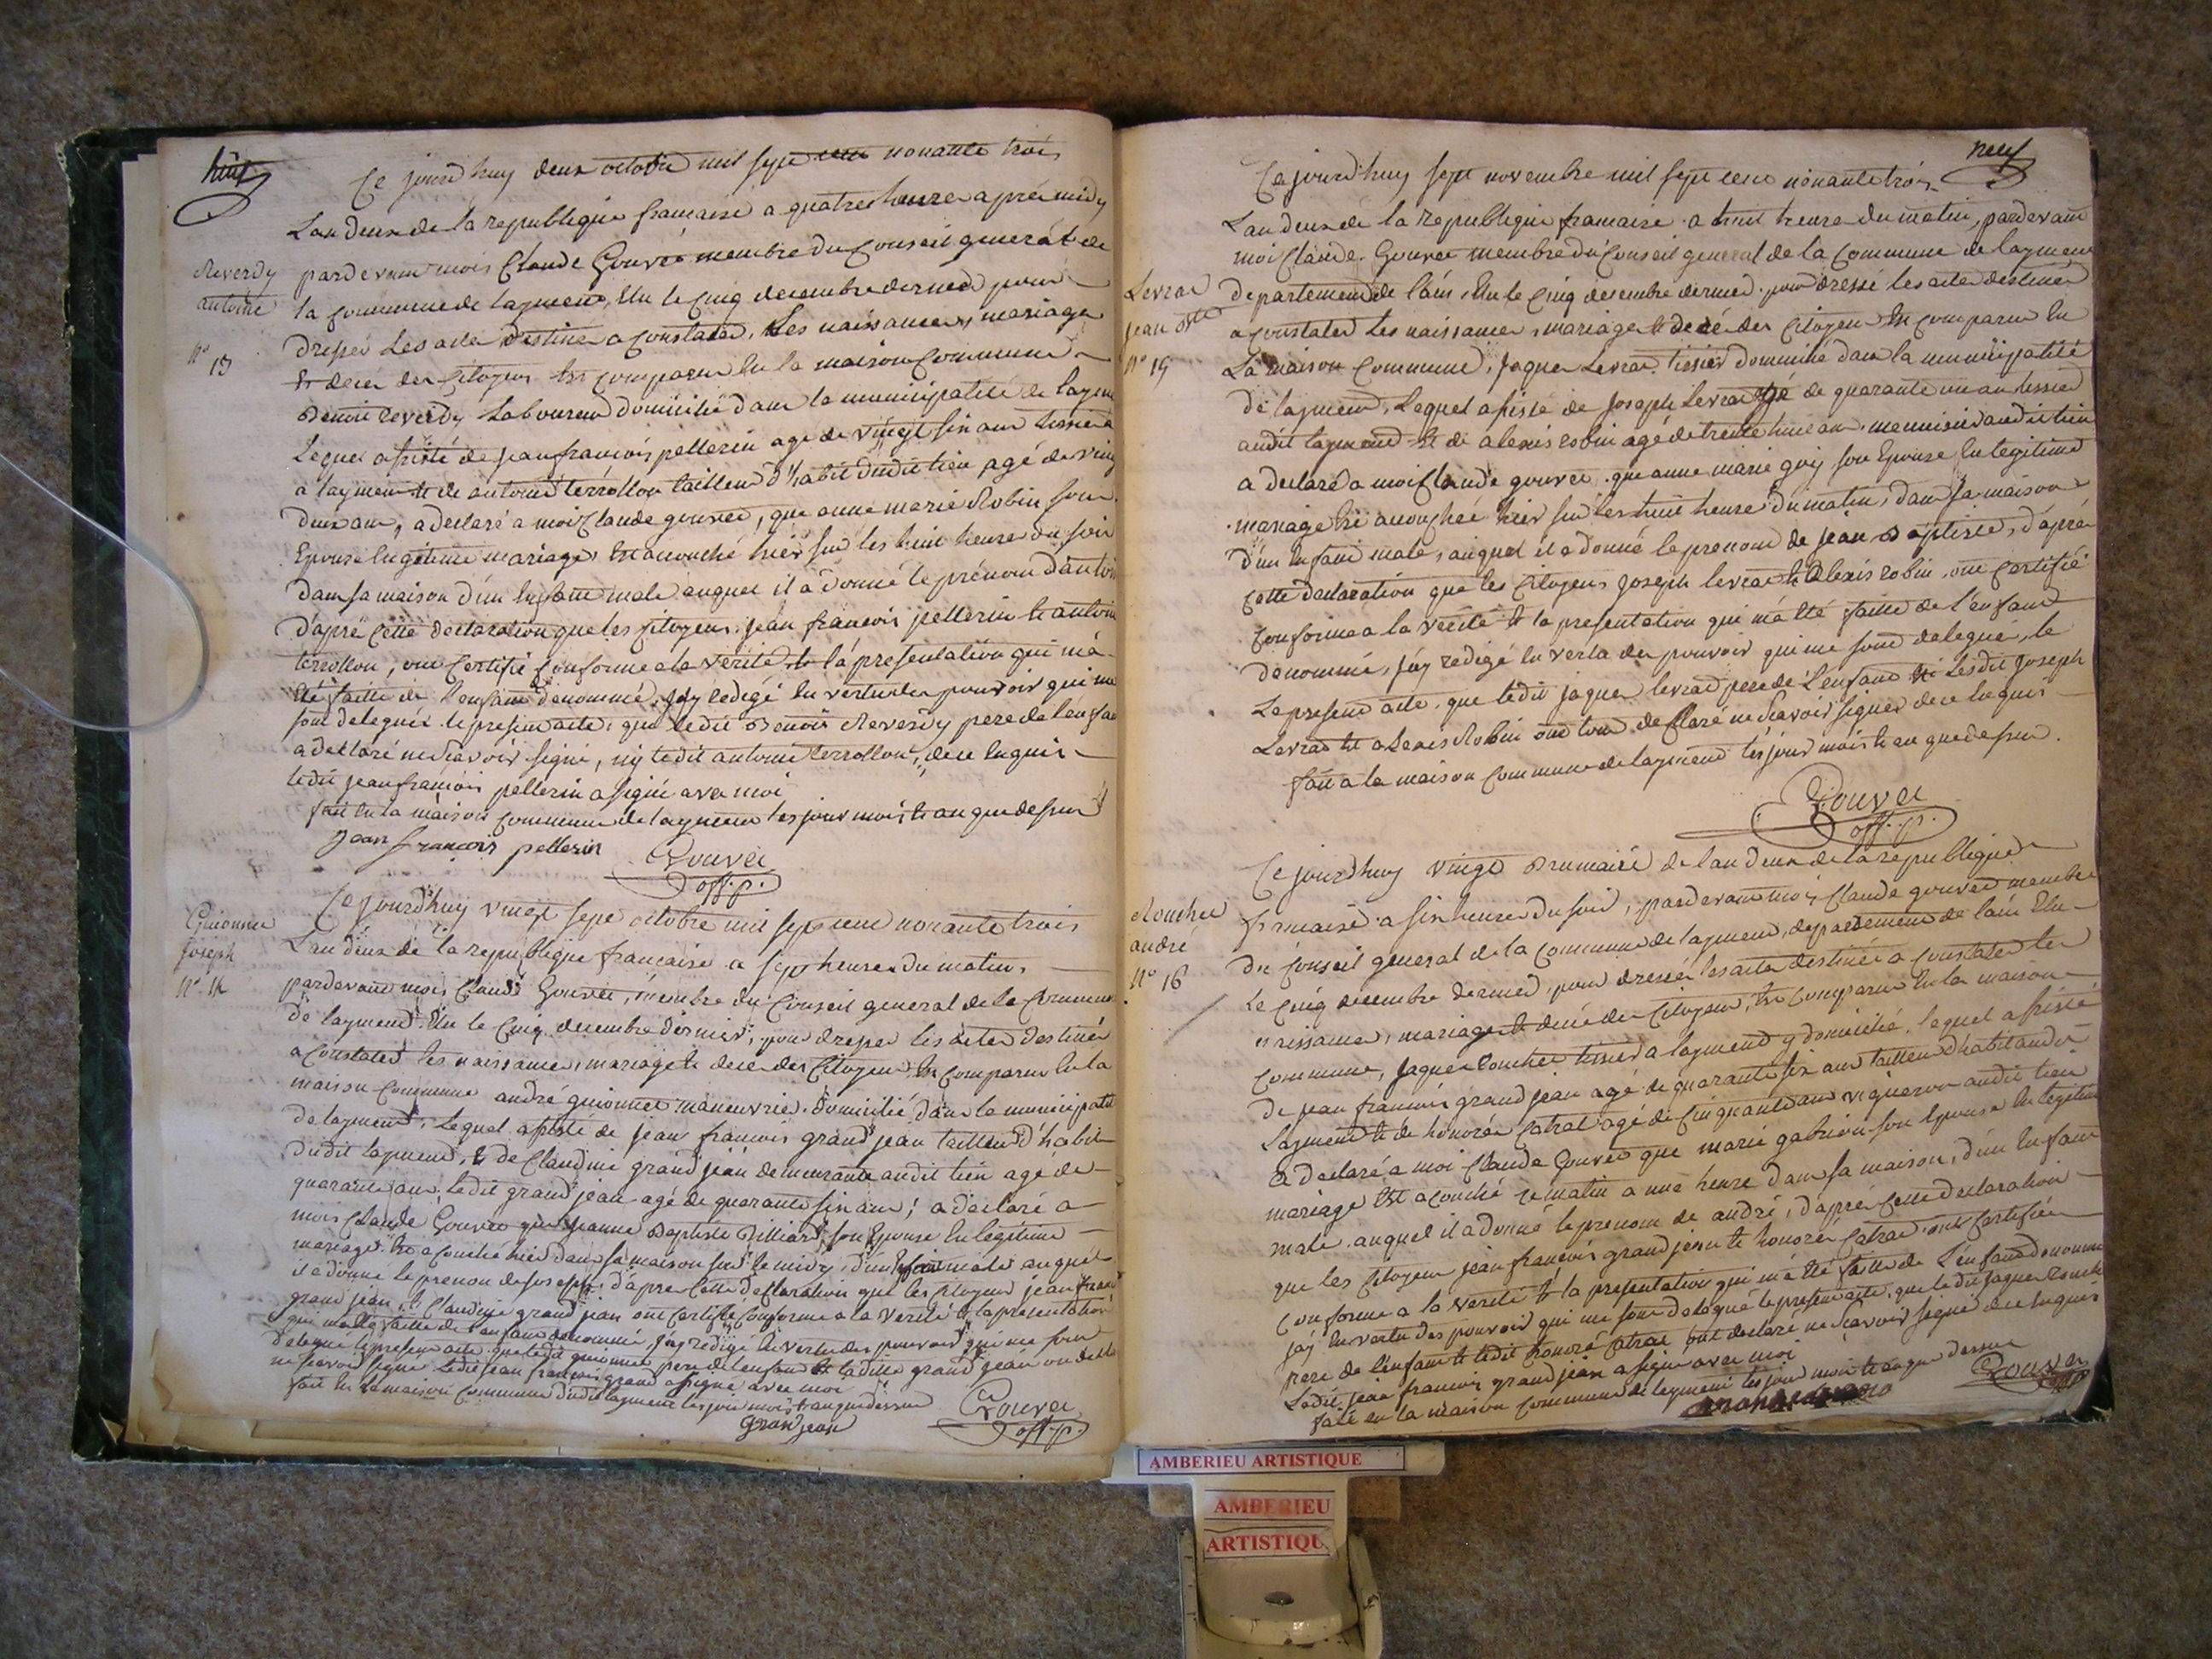 huit
Ce jourdhuy deux octobre mil sept cent nonante trois
Lan deux de la republique francaise a quatre heure aprés midy
Reverdy
antoine
n° 13
pardevant moi Claude Gouvée membre du Conseil general de
la commune de laymend, Elu le Cinq decembre dernied pour
dresser les actes destinés a constated, Les naissances, mariage
et deces des Citoyens est comparu En la maison Commune
Benoit reverdy Laboureur domicilié dans la municipalité de laymend
Lequel assisté de jean francois pellerin age de vingt six ans tissier
a laymend et de antoine terrollon tailleur d'habit dudit lieu agé de vingt
deux ans, a declaré a moi Claude gouvée, que anne marie Robin son
Epouse En legitime mariage, Est acouché hier sur les huit heure du soir
dans sa maison d'un Enfant male auquel il a donné le prénom d'antoine
d'apré cette declaration que les Citoyens jean francois pellerin et antoine
terrollon, ont Certifié Conforme a la verité et la presentation qui m'a
été faitte de l'enfant denommé, j'ay redigé En vertu des pouvoir qui me
sont delegués le present acte, que ledit Benoit Reverdy pere de l'enfant
a declaré ne scavoir signé, ny ledit antoine terrollon, de ce Enquis
ledit jean francois pellerin a signé avec moi
fait En la maison Commune de laymend les jour mois et an que dessus
Jean francois pellerin Gouvée
off. p.
Guionnet
Joseph
n° 14
Ce jourdhuy vingt sept octobre mil sept cent nonante trois
Lan deux de la republique francaise a sept heures du matin,
pardevant moi, Claude Gouvée, membre du Conseil general de la Commune
de laymend, Elu le Cinq decembre dernier, pour dresser les actes destinés
a Constated les naissance, mariage et deces des Citoyens, Est comparu En la
maison Commune andré guionnet maneuvrier, domicilié dans la municipalité
de laymend, Lequel assisté de jean francois grand jean tailleur d'habit
dudit laymend, & de Claudine grand jean demeurante audit lieu agé de
quarante ans, Ledit grand jean agé de quarante six ans, a declaré a
moi Claude Gouvée que jeanne Baptiste Billiard son Epouse En legitime
mariage Est acouché hier dans sa maison sur le midy, d'un Enfant male auquel
il a donné le prenon de joseph, d'apre cette declaration que les Citoyens jean francois
grand jean, et Claudine grand jean ont Certifié Conforme a la verité et la presentation
qui m'a été faitte de l'enfant denommé, j'ay redigé En vertu des pouvoir qui me sont
delegué le present acte que ledit guionnet pere de l'enfant et ladite grand jean ont declaré
ne scavoir signé ledit jean francois grand a signé avec moi
fait En la maison Commune dudit laymend les jour mois & an que dessus
Grand jean Gouvée
off. p.
neuf
Ce jourdhuy sept novembre mil sept cent nonante trois
Lan deux de la republique francaise a huit heure du matin, pardevant
moi Claude Gouvée membre du Conseil general de la Commune de laymend
Levrat
jean bte
n° 15
departement de l'ain, Elu le Cinq decembre dernied pour dressé les actes destinés
a constated Les naissances, mariage et decés des Citoyens Est comparu En
La maison Commune, Jaques Levrat tissier domicilié dans la municipalité
de laymend, Lequel assisté de Joseph Levrat agé de quarante un an tissier
audit laymend Et de alexis robin agé de trente huit ans, menuisier audit lieu
a declaré a moi Claude gouvée que anne marie guy son Epouse En legitime
mariage Est acouchée hier sur les huit heure du matin, dans sa maison
d'un Enfant male, auquel il a donné le prenom de jean Baptiste, d'apré
cette declaration que les Citoyens Joseph levrat et Alexis robin ont Certifié
Conforme a la verité et la presentation qui m'a été faitte de l'enfant
denommé, j'ay redigé En vertu des pouvoir qui me sont delegué, le
Le present acte que ledit jaques levrat pere de l'enfant et Lesdit Joseph
Levrat et alexis Robin ont tous declaré ne scavoir signer de ce Enquis
fait a la maison commune de laymend les jour mois et an que dessus.
Gouvée
off. p.
Rouchet
andré
n° 16
Ce jourdhuy vingt Brumaire de lan deux de la republique
francaise a six heures du soir, pardevant moi, Claude gouvée membre
du Conseil general de la Commune de laymend, departement de l'ain Elu
Le Cinq decembre dernied, pour dressé les actes destinés a constated les
naissances, mariage et decés des Citoyens, Est Comparu En la maison
Commune, Jaques rouchet tissier a laymend y domicilié, lequel assisté
de jean francois grand jean agé de quarante six ans tailleur d'habit audit
Laymend et de honoré Catrat agé de Cinquante ans vigneron audit lieu
a declaré a moi Claude Gouvée que marie gabrion son Epouse En legitime
mariage Est acouché ce matin a une heure dans sa maison, d'un Enfant
male auquel il a donné le prenom de andré, d'apré Cette declaration
que les Citoyens jean francois grand jean et honoré Catrat ont Certifiér
Conforme a la verité et la presentation qui m'a été faitte de l'enfant denommé
j'ay En vertu des pouvoir qui me sont delegué le present acte que ledit jaques rouchet
pere de l'enfant et ledit honoré Catrat ont declaré ne scavoir signé de ce Enquis
Ledit jean francois grand jean a signé avec moi
fait en la maison commune de laymend les jour mois et an que dessus
Gouvée
AMBERIEU ARTISTIQUE
AMBERIEU
ARTISTIQU